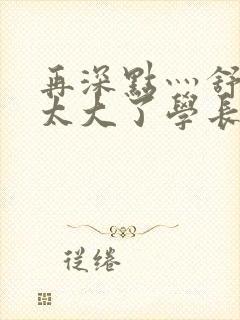 再深點灬舒
太大了學長
從绻